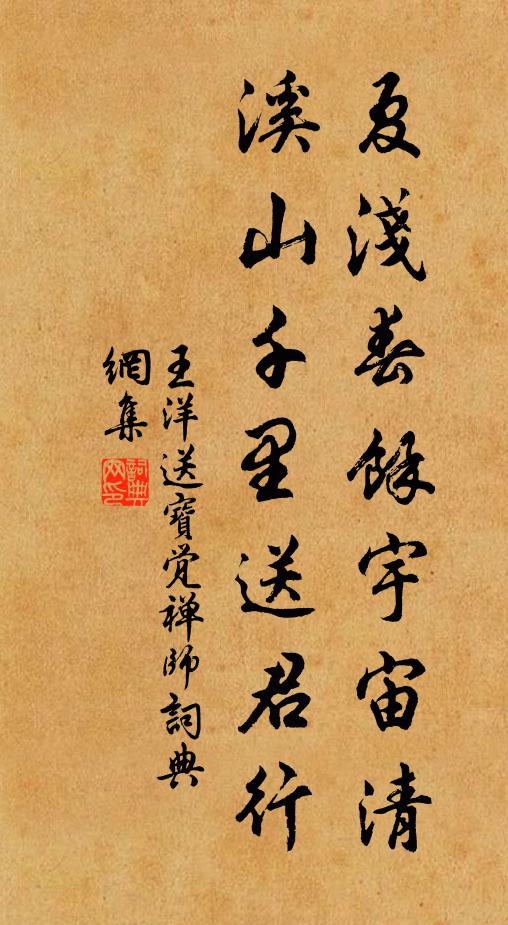 夏淺春餘宇宙清
溪山千里送君行
王洋送寶覺禪師詞典
網集
詞典
网印